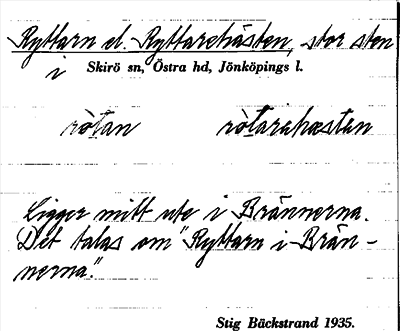 Ryttarn el. Ryttarehästen, stor sten
i Skirö sn, Östra hd, Jönköpings l.
rὸtan rὸtarehæstan
Ligger mitt ute i Brännerna.
Det talas om "Ryttarn i Brän-
nerna."
Stig Bäckstrand 1935.